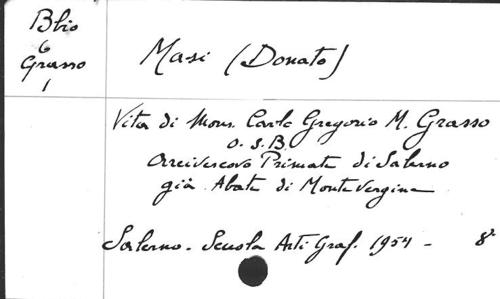 Bbio
6
Grasso
1
Masi (Donato)
Vita di Mons. Carlo Gregorio M. Grasso
O.S.B.
Arcivescovo Primate di Salerno
già Abate di Montevergine
Salerno - Scuola Arti Graf. 1954 - 8°